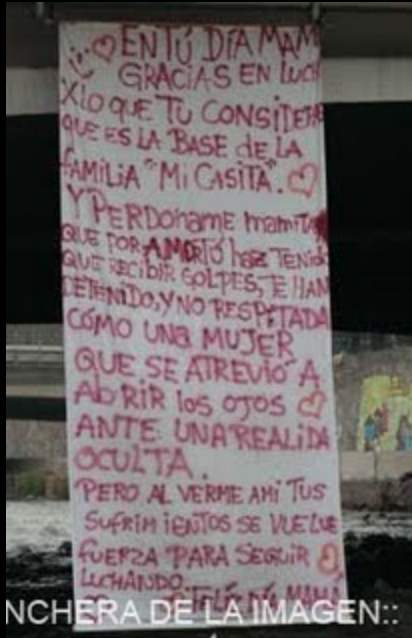 EN TÚ DÍA MAM
GRACIAS EN LUCH
X LO QUE TU CONSIDERA
QUE ES LA BASE de LA
FAMILIA "MI CASITA".
Y PERDONAME mamita
QUE POR AMOR TÚ haz TENIDO
QUE RECIBIR GOLPES, TE HAN
DETENIDO, Y NO RESPETADA
CÓMO UNA MUJER
QUE SE ATREVIÓ A
AbRIR los OJOS
ANTE UNA REALIDA
OCULTA.
PERO AL VERME AHI TUS
SUFRIMIENTOS SE VUELVE
FUERZA PARA SEGUIR
LUCHANDO.
DÍA MAMÁ
NCHERA DE LA IMAGEN::